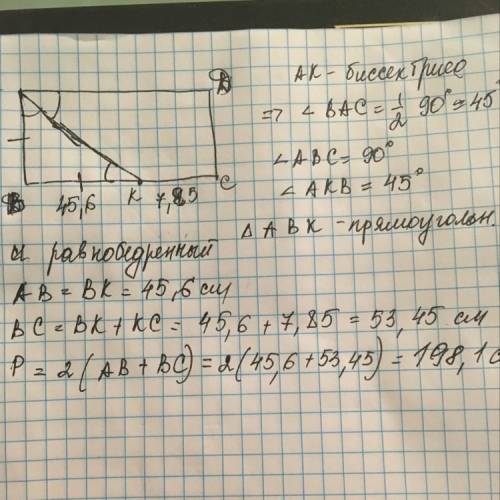 D
B
45,6
K
7,85
C
AK - биссектриса
=> ∠ BAC = 1/2 90° = 45°
∠ABC = 90°
∠ AKB = 45°
Δ ABK - прямоугольн.
и равнобедренный
AB = BK = 45,6 см
BC = BK + KC = 45,6 + 7,85 = 53,45 см
P = 2(AB + BC) = 2(45,6 + 53,45) = 198,1 с